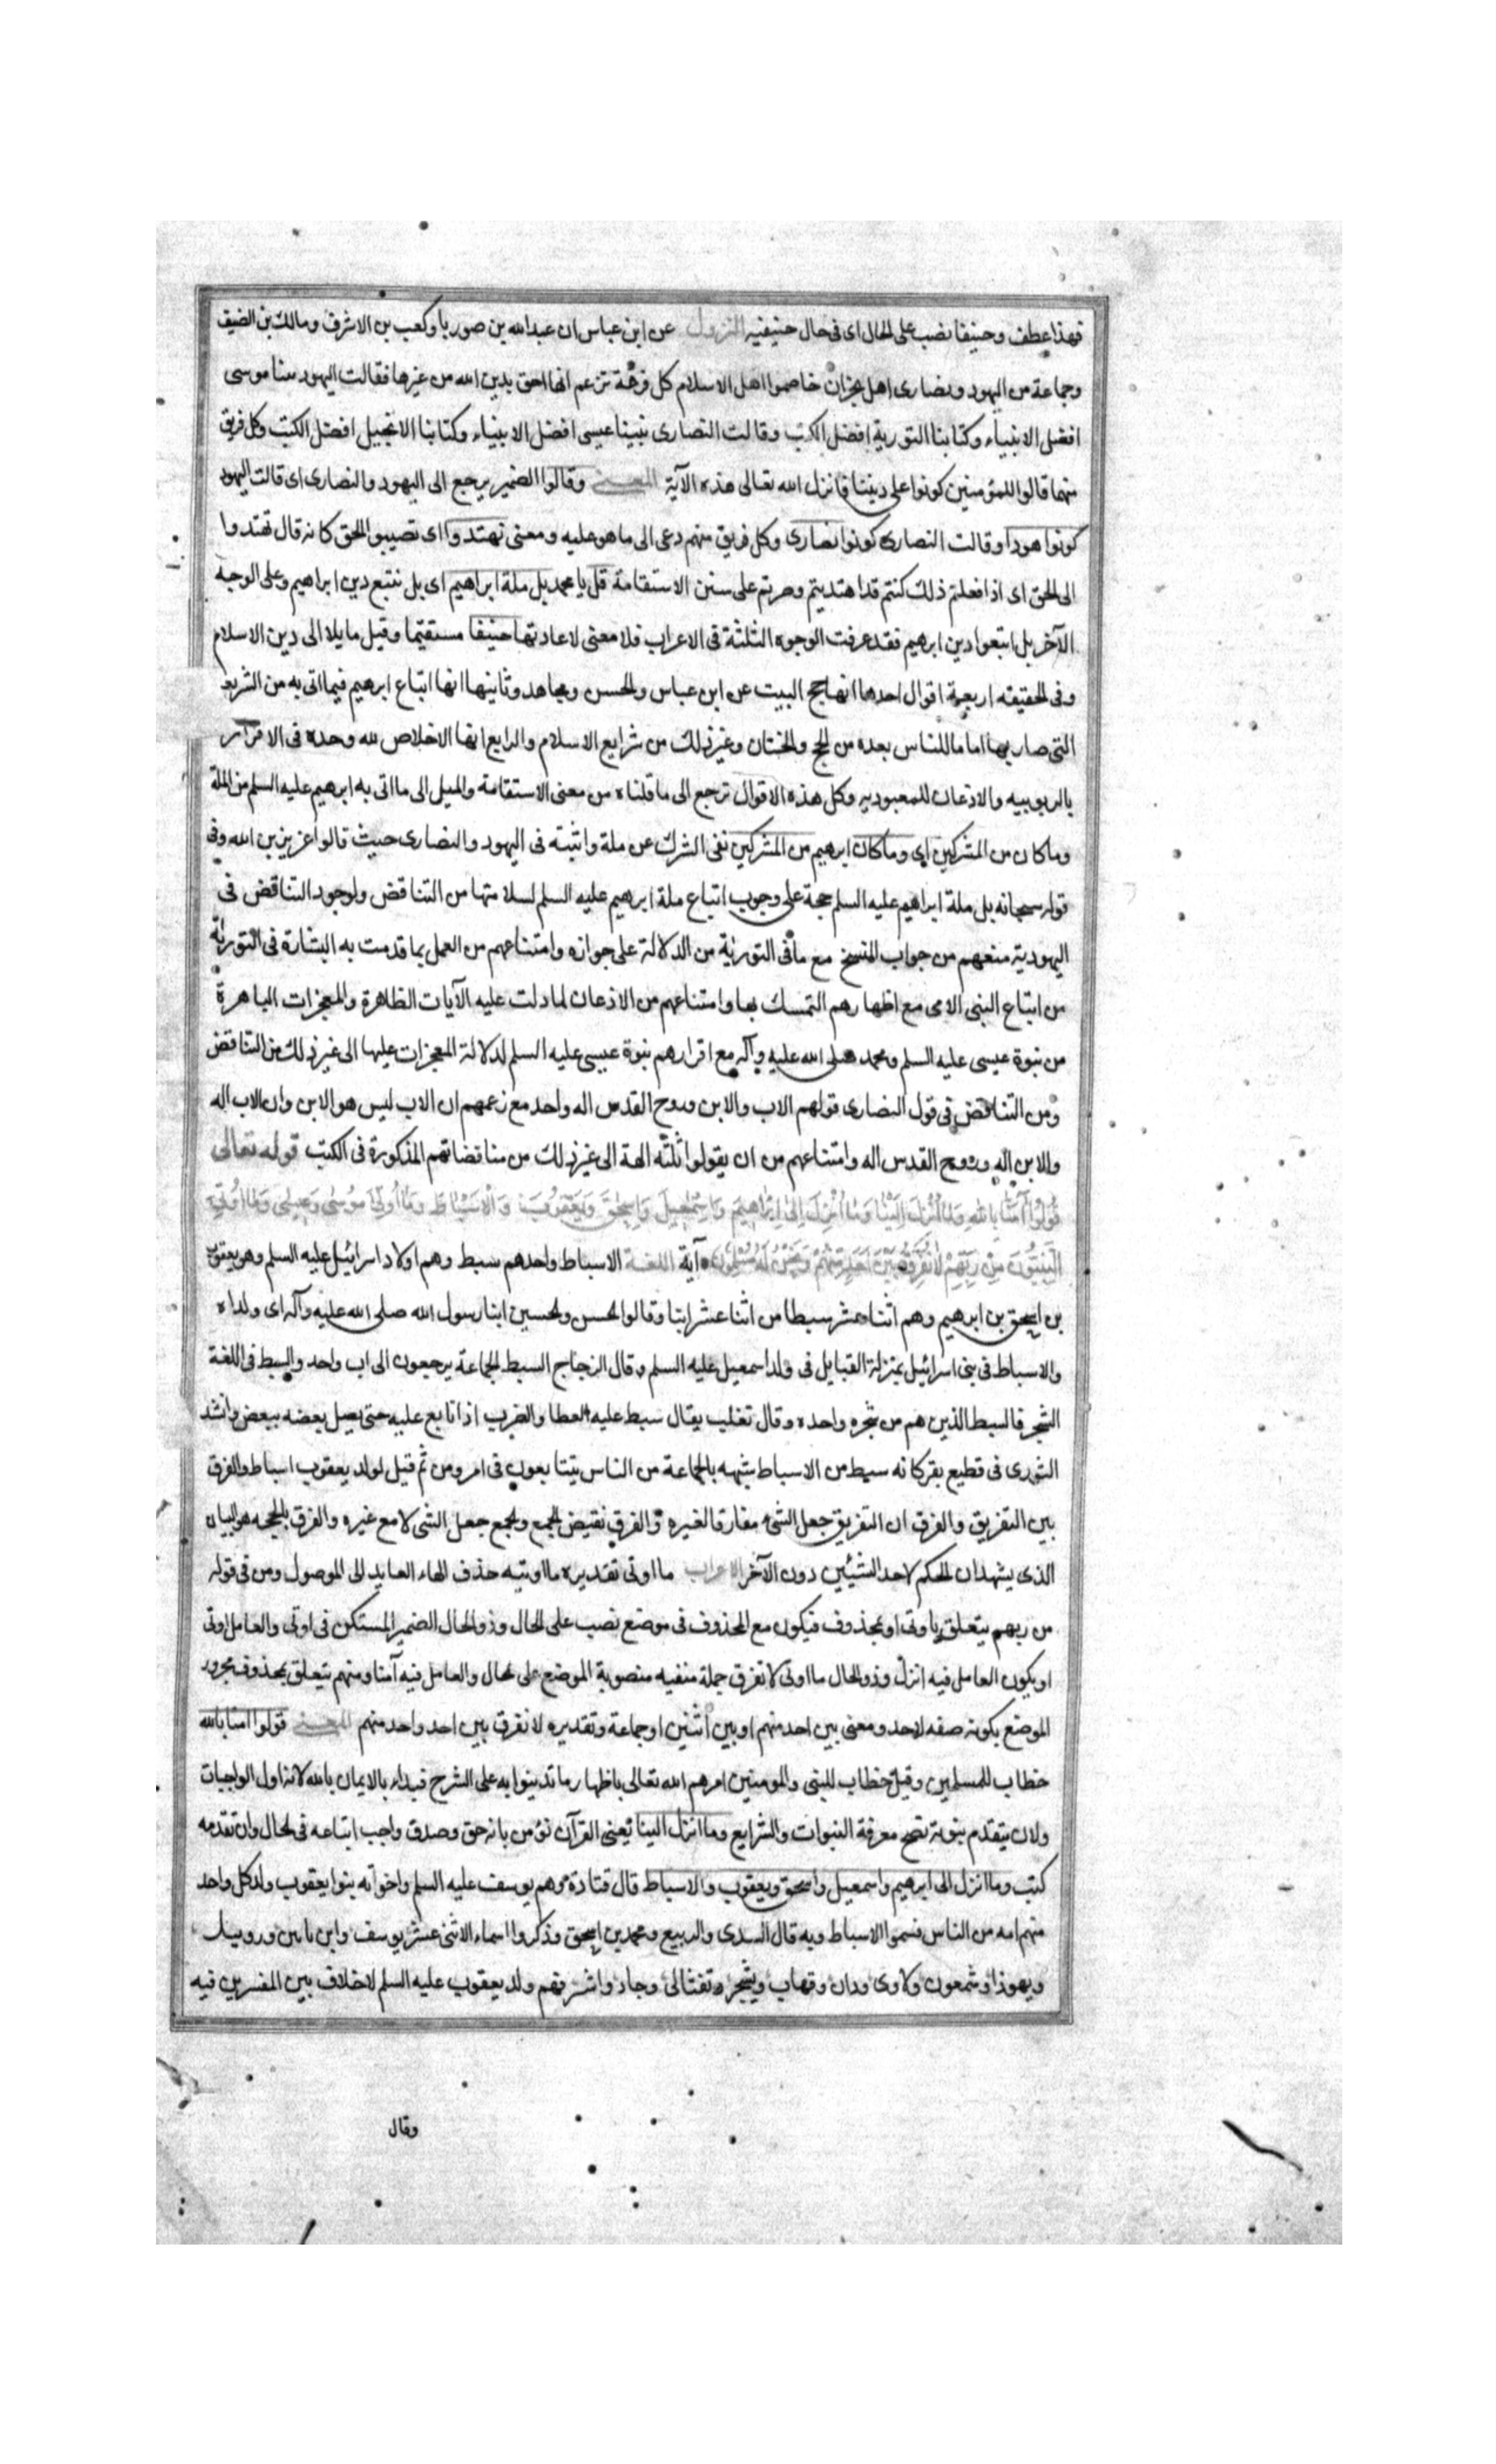 فهذا عطف وحنيفا نصب على الحال اى فى حال حنيفيه النزول عن ابن عباس ان عبدالله بن صوريا وكعب بن الاشرف ومالك بن الضيف
وجماعة من اليهود ونصارى اهل نجران خاصموا اهل الاسلام كل فرقة تزعم انها احق بدين الله من غيرها فقالت اليهود نبينا موسى
افضل الانبياء وكتابنا التورية افضل الكتب وقالت النصارى نبينا عيسى افضل الانبياء وكتابنا الانجيل افضل الكتب وكل فريق
منهما قالوا للمؤمنين كونوا على ديننا فانزل الله تعالى هذه الآية المعنى وقالوا الضمير يرجع الى اليهود والنصارى اى قالت اليهود
كونوا هودا وقالت النصارى كونوا نصارى وكل فريق منهم دعى الى ما هو عليه ومعنى تهتدوا اى تصيبوا الحق كانه قال تهتدوا
الى الحق اى اذا فعلتم ذلك كنتم قد اهتديتم وصرتم على سنن الاستقامة قل يا محمد بل ملة ابراهيم اى بل نتبع دين ابراهيم وعلى الوجه
الآخر بل اتبعوا دين ابرهيم فقد عرفت الوجوه الثلثة فى الاعراب فلا معنى لاعادتها حنيفا مستقيما وقيل مايلا الى دين الاسلام
وفى الحقيقته اربعة اقوال احدها انها حج البيت عن ابن عباس والحسن ومجاهد وثانيها انها اتباع ابرهيم فيما اتى به من الشريعة
التى صار بها اماما للناس بعده من الحج والختان وغير ذلك من شرايع الاسلام والرابع انها الاخلاص لله وحده فى الاقرار
بالربوبيه والاذعان للمعبوديه وكل هذه الاقوال ترجع الى ما قلناه من معنى الاستقامة والميل الى ما اتى به ابرهيم عليه السلم من الملة
وما كان من المشركين اى وما كان ابرهيم من المشركين نفى الشرك عن ملة واثبته فى اليهود والنصارى حيث قالوا عزير بن الله وفى
قوله سبحانه بل ملة ابراهيم عليه السلم حجة على وجوب اتباع ملة ابرهيم عليه السلم لسلامتها من التناقض ولوجود التناقض فى
اليهودية منعهم من جواب النسخ مع ما فى التورية من الدلالة على جوازه وامتناعهم من العمل بما قدمت به البشارة فى التورية
من اتباع النبى الامى مع اظهارهم التمسك بها وامتناعهم من الاذعان لما دلت عليه الآيات الظاهرة والمعجزات الباهرة
من نبوة عيسى عليه السلم ومحمد صلى الله عليه وآله مع اقرارهم نبوة عيسى عليه السلم لدلالة المعجزات عليها الى غير ذلك من التناقض
ومن التناقض فى قول النصارى قولهم الاب والابن وروح القدس اله واحد مع زعمهم ان الاب ليس هو الابن وان الاب اله
والابن اله وروح القدس اله وامتناعهم من ان يقولوا ثلثة الهة الى غير ذلك من مناقضاتهم المذكورة فى الكتب قوله تعالى
قُولُوا آمَنَّا بِاللهِ وَمَا أُنْزِلَ إِلَيْنَا وَمَا أُنْزِلَ إِلَى إِبْرَاهِيمَ وَإِسْمَعِيلَ وَإِسْحَقَ وَيَعْقُوبَ وَالْأَسْبَاطِ وَمَا أُوتِيَ مُوسَى وَعِيسَى وَمَا أُوتِيَ
النَّبِيُّونَ مِنْ رَبِّهِمْ لَا نُفَرِّقُ بَيْنَ أَحَدٍ مِنْهُمْ وَنَحْنُ لَهُ مُسْلِمُونَ آية اللغة الاسباط واحدهم سبط وهم اولاد اسرائيل عليه السلم وهو يعقوب
بن اسحق بن ابرهيم وهم اثنا عشر سبطا من اثنا عشر ابنا وقالوا الحسن والحسين ابنا رسول الله صلى الله عليه وآله اى ولداه
والاسباط فى بنى اسرائيل بمنزلة القبايل فى ولد اسمعيل عليه السلم وقال الزجاج السبط الجماعة يرجعون الى اب واحد والسبط فى اللغة
الشجر فالسبط الذين هم من شجره واحده وقال تغلب يقال سبط عليه العطا والضرب اذا تابع عليه حتى يصل بعضه ببعض وانشد
الثورى فى قطيع بقر كانه سبط من الاسباط شبهه بالجماعة من الناس يتتابعون فى امر ومن ثم قيل لولد يعقوب اسباط والفرق
بين التفريق والفرق ان التفريق جعل الشىء مفارقا لغيره والفرق نقيض الجمع والجمع جعل الشى لا مع غيره والفرق بالحجه هو البيان
الذى يشهد ان الحكم لاحد الشيئين دون الآخر الاعراب ما اوتى تقديره ما اوتيه حذف الهاء العايد الى الموصول ومن فى قوله
من ربهم يتعلق باوتى او بمحذوف فيكون مع المحذوف فى موضع نصب على الحال وذو الحال الضمير المستكن فى اوتى والعامل اوتى
او يكون العامل فيه انزل وذو الحال ما اوتى لا نفرق جملة منفيه منصوبة الموضع على الحال والعامل فيه آمنا ومنهم يتعلق بمحذوف مجرور
الموضع بكونه صفه لاحد ومعنى بين احد منهم او بين اثنين او جماعة وتقديره لا نفرق بين احد واحد منهم المعنى قولوا امنا بالله
خطاب للمسلمين وقيل خطاب للنبى والمومنين امرهم الله تعالى باظهار ما تدينوا به على الشرح فبداء بالايمان بالله لانه اول الواجبات
ولان بتقدم نبوته تصح معرفة النبوات والشرايع وما انزل الينا يعنى القرآن نؤمن بانه حق وصدق واجب اتباعه فى الحال وان تقدمه
كتب وما انزل الى ابرهيم واسمعيل واسحق ويعقوب والاسباط قال قتادة هم يوسف عليه السلم واخواته بنوا يعقوب ولد كل واحد
منهم امه من الناس فسموا الاسباط وبه قال السدى والربيع ومحمد بن اسحق وذكروا اسماء الاثنى عشر يوسف وابن يامين وروبيل
ويهوذا وشمعون ولاوى ودان وقهاب ويشجر تفتالى وجاد واشر فهم ولد يعقوب عليه السلم لا خلاف بين المفسرين فيه
وقال